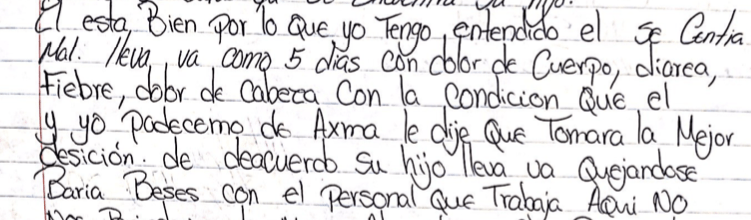 El esta Bien por lo que yo Tengo entendido el se Centia
Mal. lleva va como 5 dias con dolor de Cuerpo, diarea,
Fiebre, dolor de Cabeza Con la Condicion Que el
y yo padecemo de Axma le dije Que Tomara la Mejor
desición. de deacuerdo su hijo lleva va Quejandose
Baria Beses con el personal que Trabaja Aqui NO